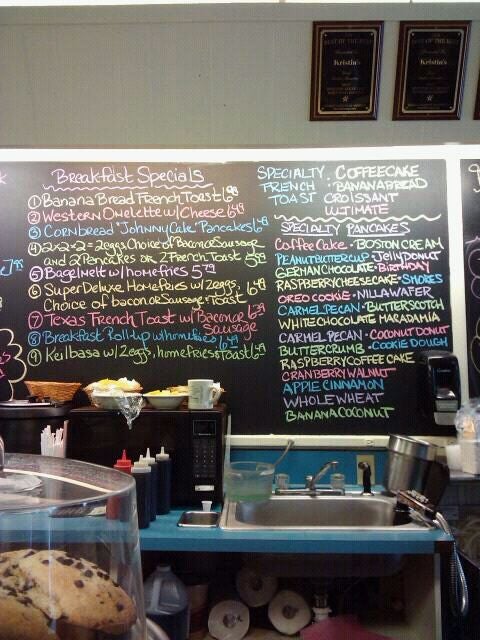 BEST OF THE BEST
Kristin's
BEST OF THE BEST
Kristin's
Breakfast Specials
① Banana Bread French Toast 6
② Western Omelette w/Cheese 6 49
③ Cornbread "Johnny Cake" Pancakes 6
④ 2x2x2 = 2eggs, Choice of Bacon or Sausage
and 2 Pancakes or 2 French Toast 5
⑤ Bagelmelt w/homefries 5 79
⑥ Super Deluxe Homefries w/2eggs,
Choice of bacon or Sausage + Toast 6
⑦ Texas French Toast w/Bacon or
Sausage
⑧ Breakfast Roll-up w/homefries
⑨ Keilbasa w/2eggs, homefries & Toast 6
SPECIALTY FRENCH TOAST
COFFEECAKE
BANANA BREAD
CROISSANT
ULTIMATE
SPECIALTY PANCAKES
Coffee Cake • BOSTON CREAM
PEANUTBUTTERCUP • JELLY DONUT
GERMAN CHOCOLATE • BIRTHDAY
RASPBERRY CHEESECAKE • SMORES
OREO COOKIE • NILLA WAFER
CARMEL PECAN • BUTTERSCOTCH
WHITE CHOCOLATE MACADAMIA
CARMEL PECAN • COCONUT DONUT
BUTTERCRUMB • COOKIE DOUGH
RASPBERRY COFFEE CAKE
CRANBERRY WALNUT
APPLE CINNAMON
WHOLE WHEAT
BANANA COCONUT